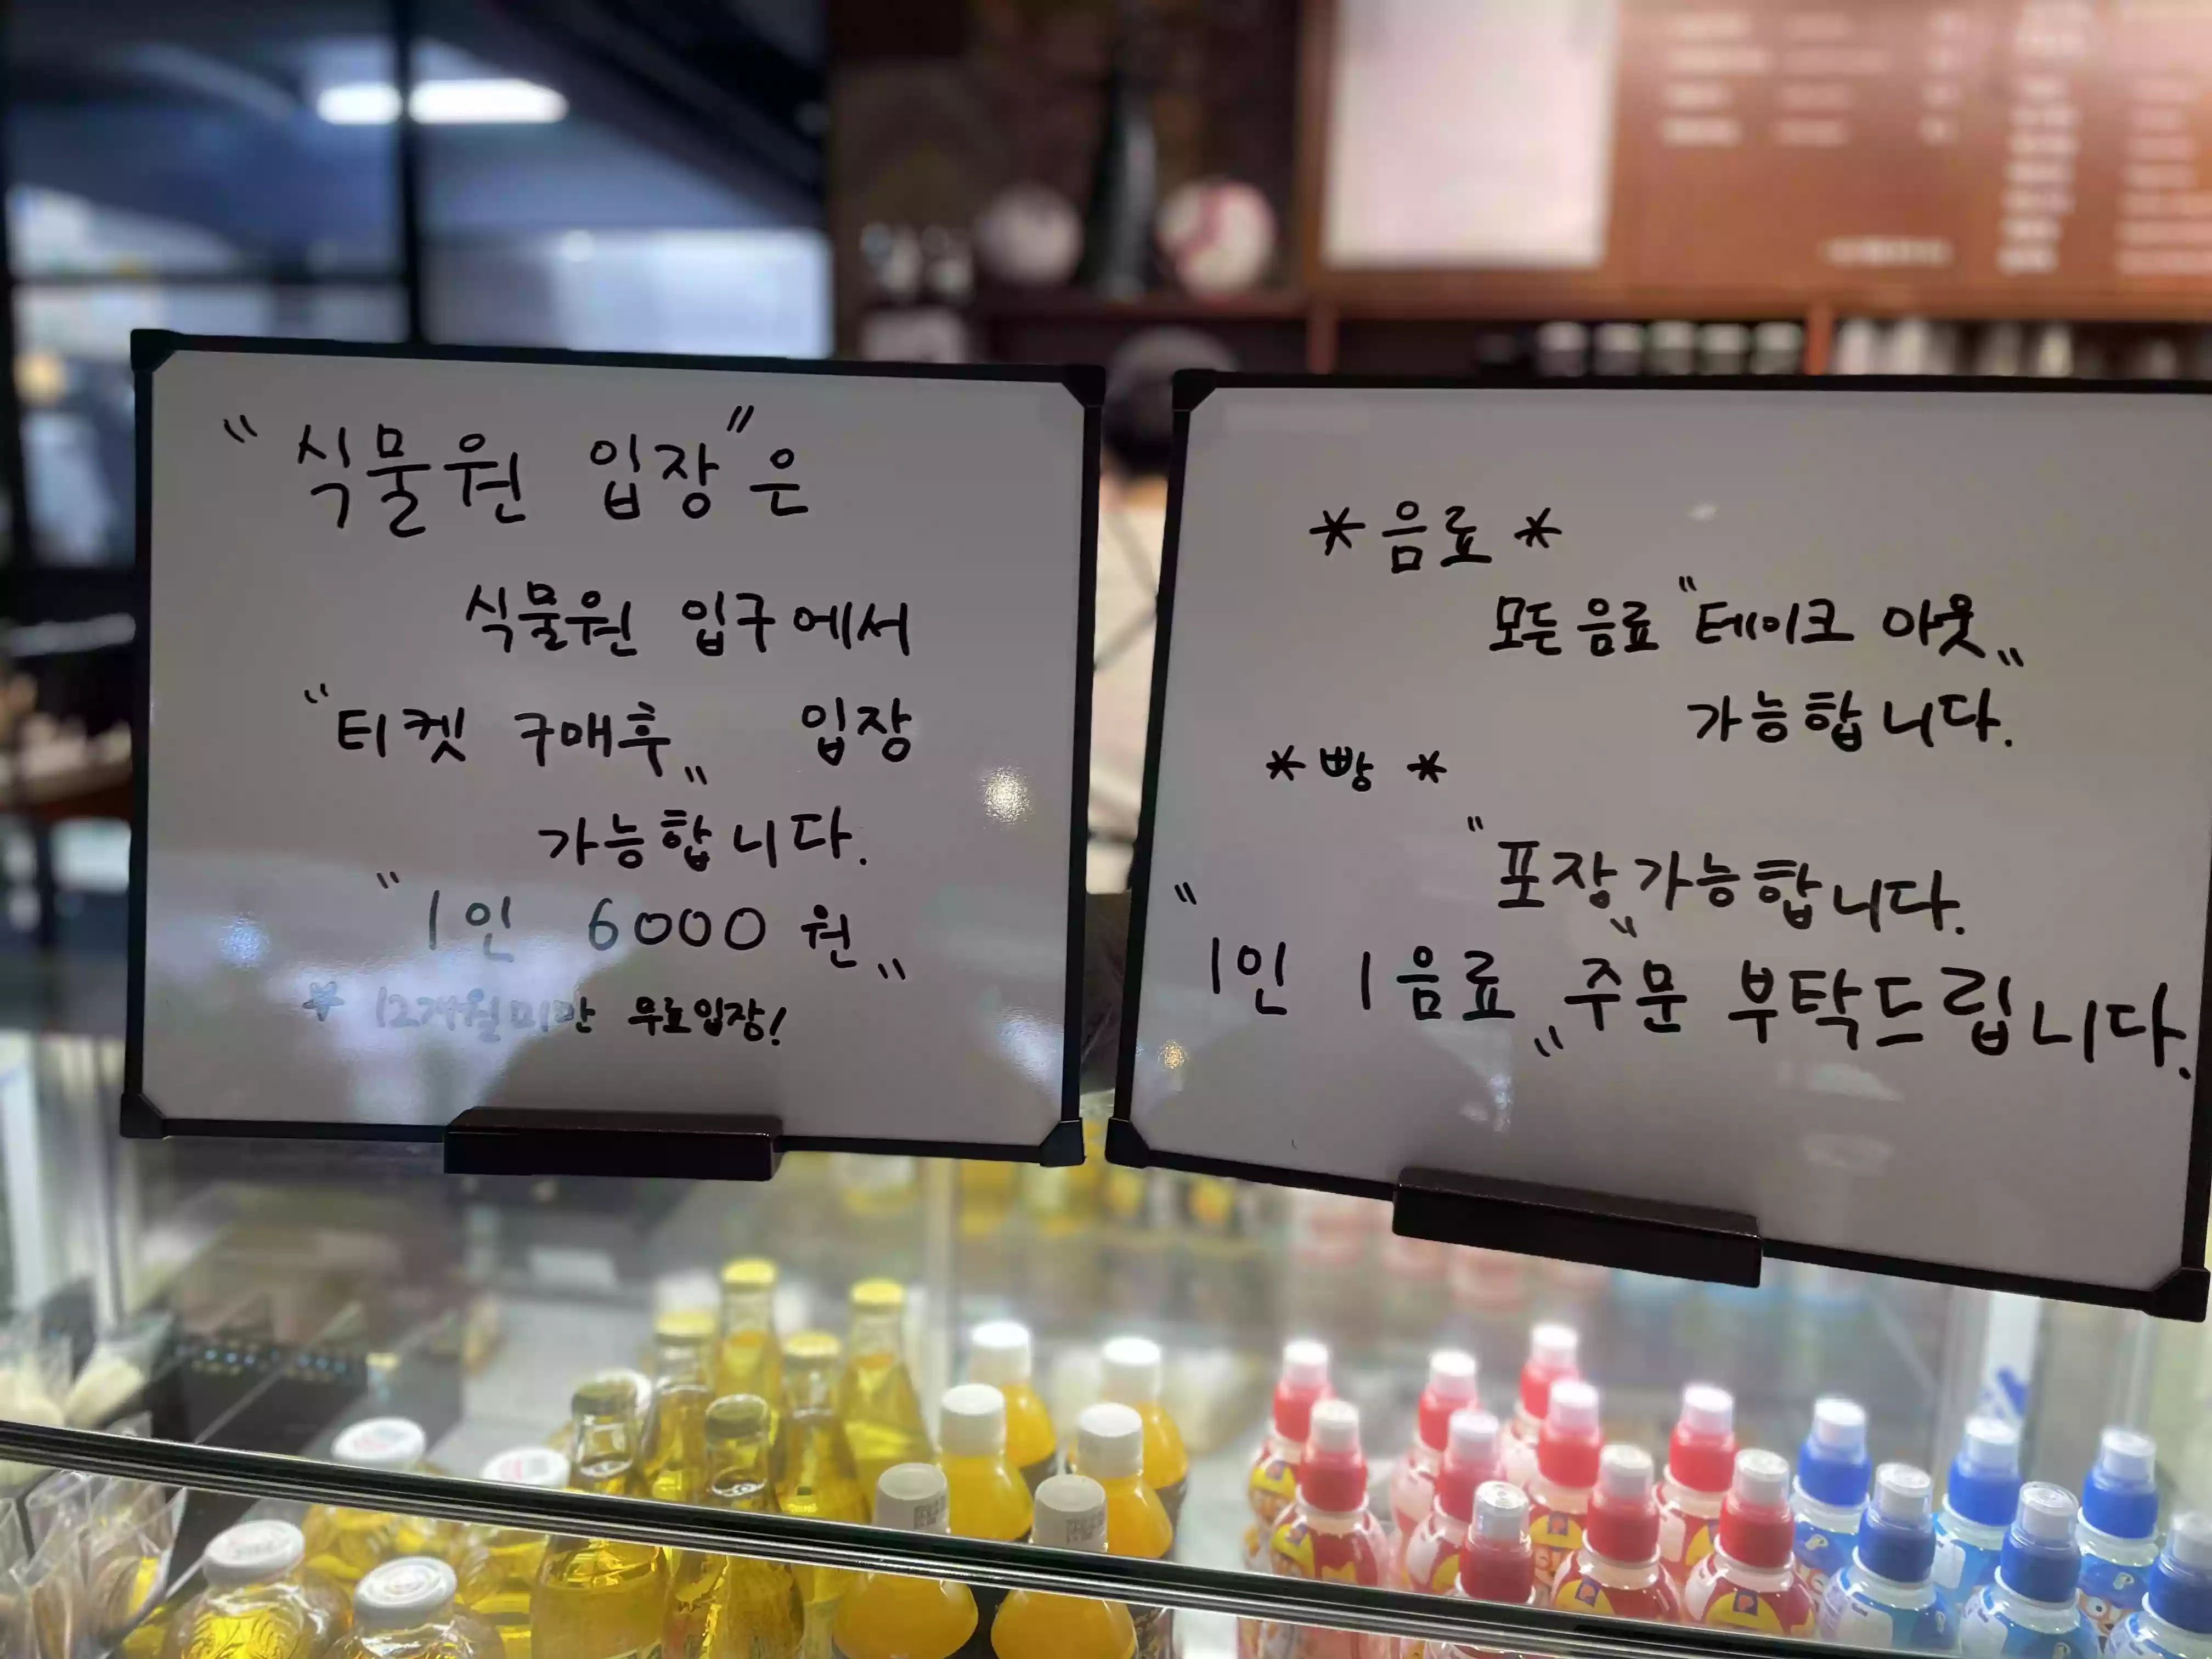 "식물원 입장"은
식물원 입구에서
"티켓 구매후" 입장
가능합니다.
"1인 6000원"
* 12개월미만 무료입장!
*음료*
모든음료 "테이크 아웃"
가능합니다.
*빵*
"포장"가능합니다.
"1인 1음료" 주문 부탁드립니다.